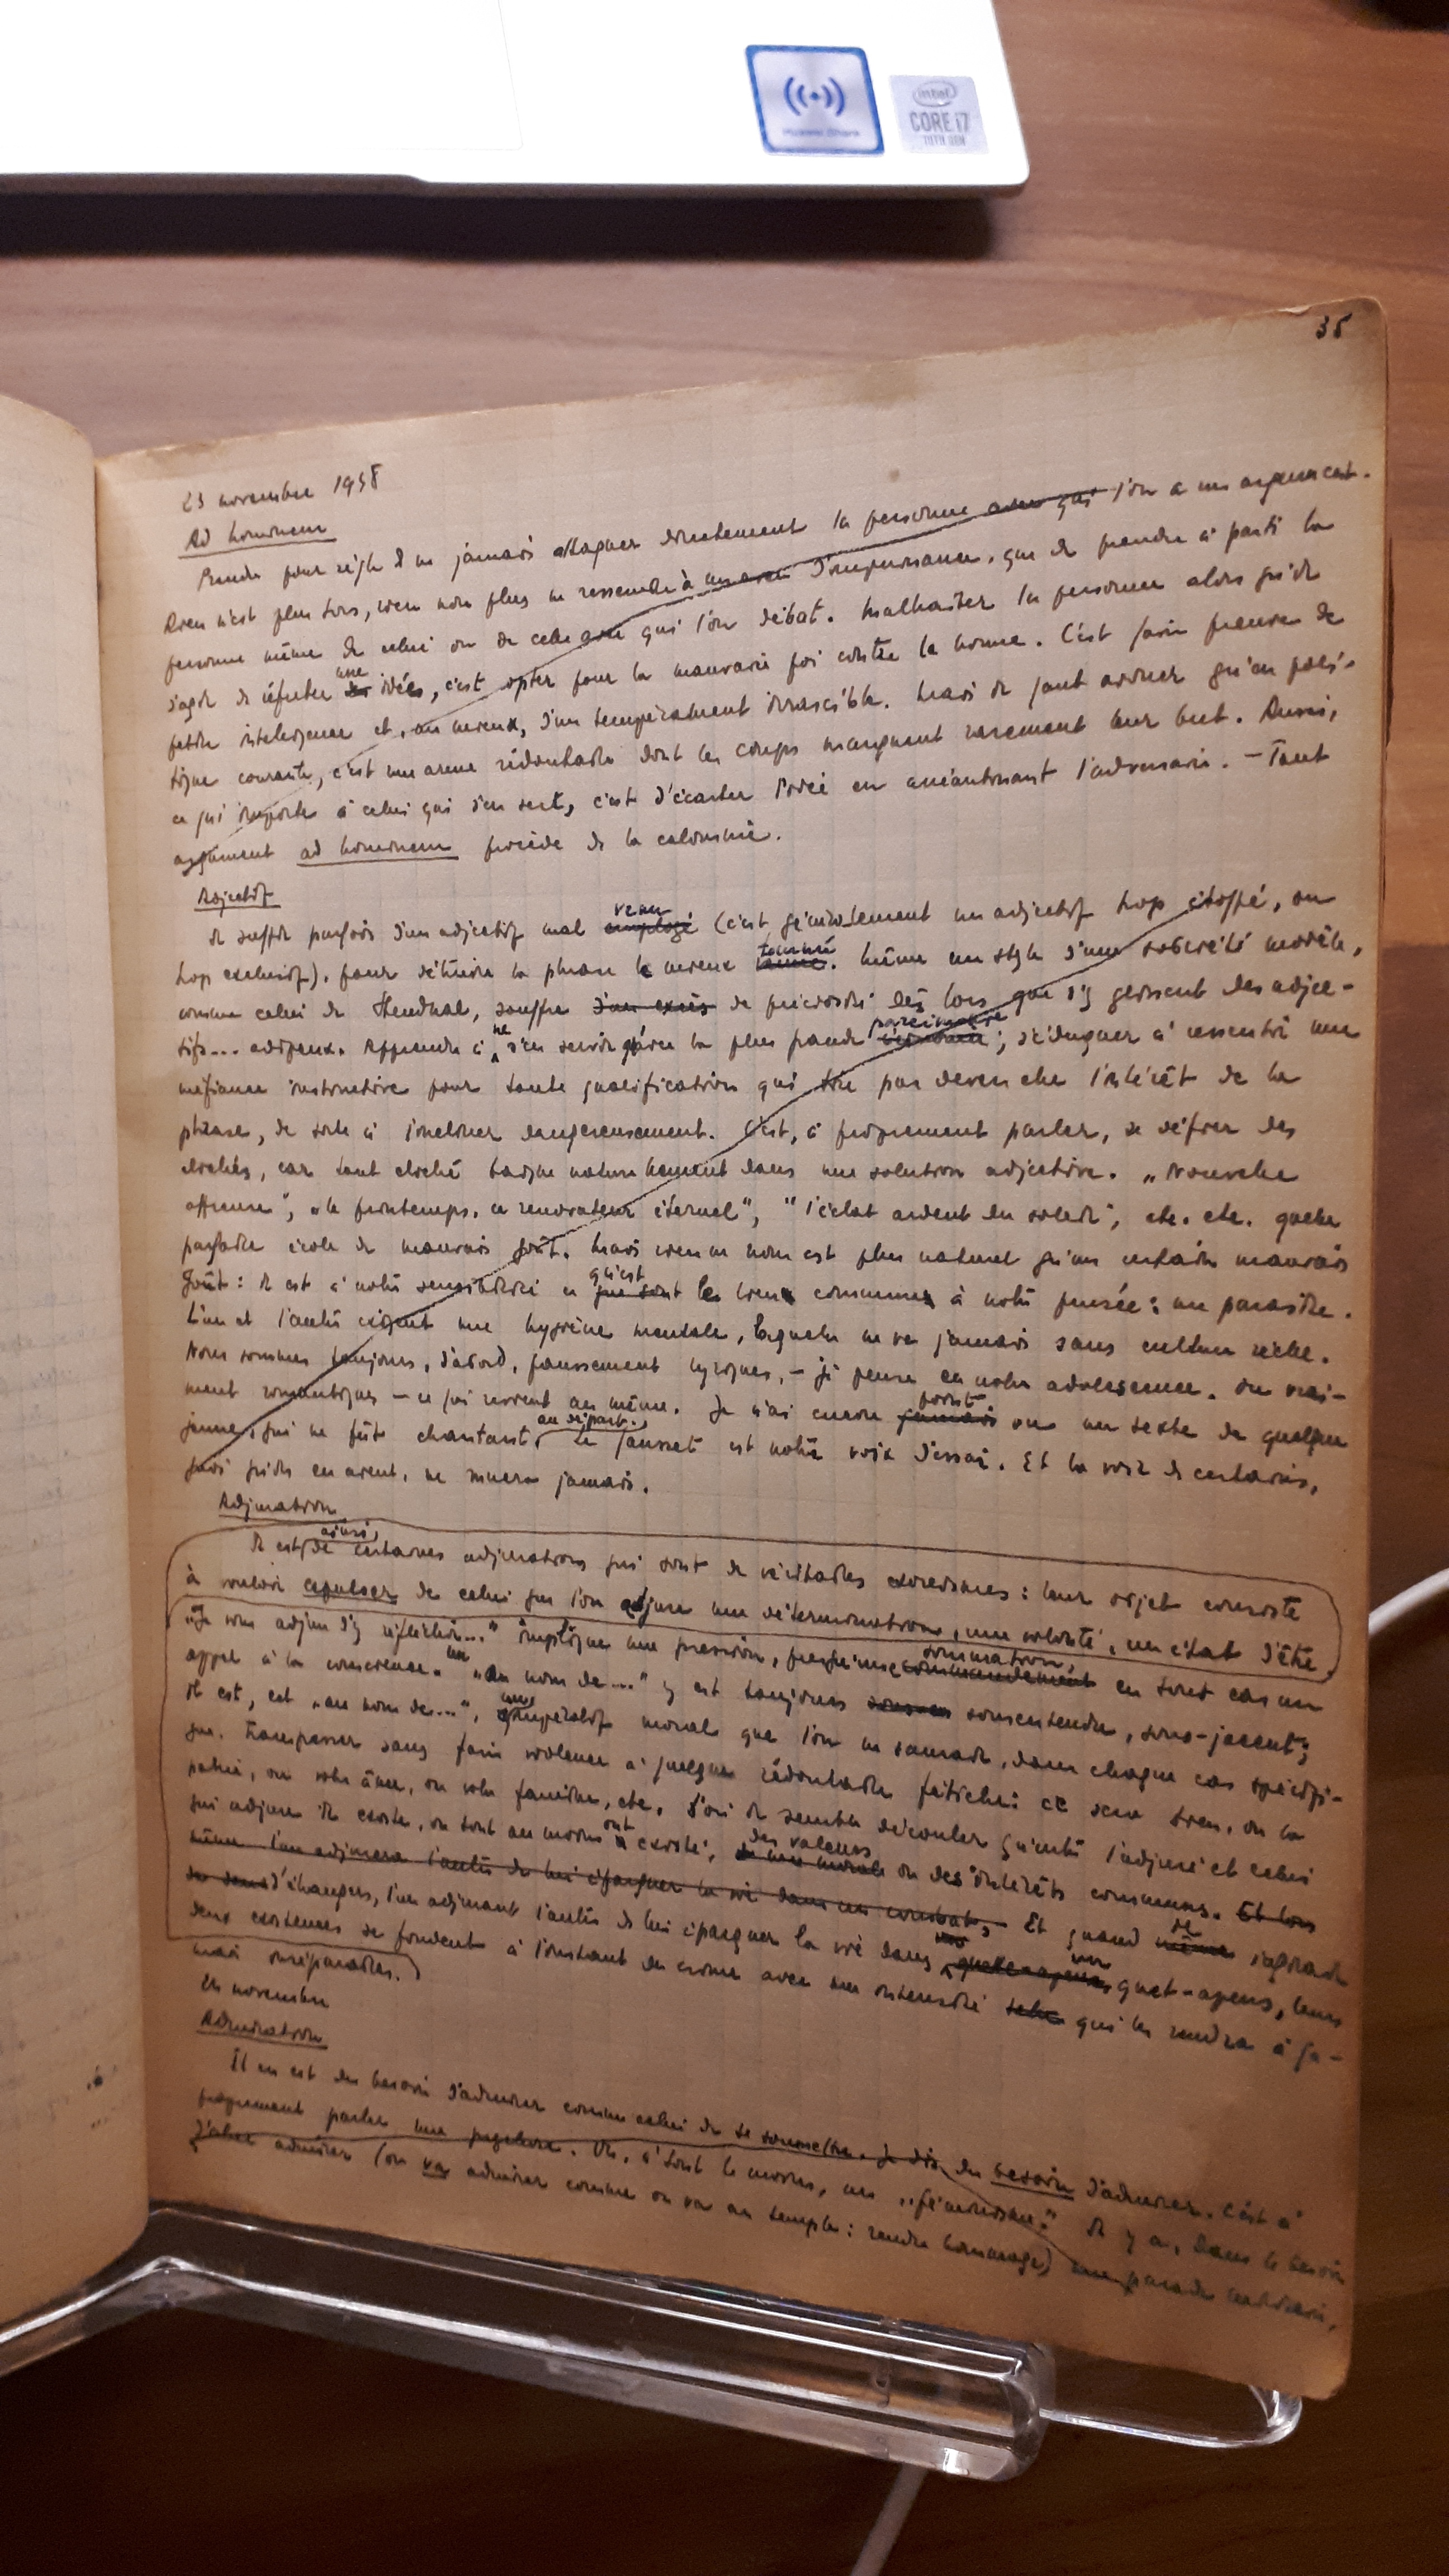 Huawei Share
intel
CORE i7
10TH GEN
35
23 novembre 1958
Ad hominem
Prendre pour règle de ne jamais attaquer directement la personne avec qui l'on a un argument.
Rien n'est plus bas, rien non plus ne ressemble à un aveu d'impuissance, que de prendre à parti la
personne même de celui ou de celle avec qui l'on débat. Malhaiter la personne alors qu'il
s'agit de réfuter une idée, c'est opter pour la mauvaise foi contre la bonne. C'est faire preuve de
petite intelligence et, au mieux, d'un tempérament irrascible. Mais il faut avouer qu'en poli-
tique courante, c'est une arme rédoutable dont les coups manquent rarement leur but. Aussi,
ce qui importe à celui qui s'en sert, c'est d'écarter l'idée en anéantissant l'adversaire. – Tout
argument ad hominem procède de la calomnie.
Adjectif
Il suffit parfois d'un adjectif mal employé venu (c'est généralement un adjectif trop étoffé, ou
trop exclusif), pour détruire la phrase le mieux tournée. Même un style d'une sobriété modèle,
comme celui de Stendhal, souffre d'un excès de préciosité dès lors que s'y glissent des adjec-
tifs... adipeux. Apprendre à ne s'en servir qu'avec la plus grande parcimonie; s'éduquer à ressentir une
méfiance instinctive pour toute qualification qui tire par devers elle l'intérêt de la
phrase, de sorte à l'incliner dangereusement. C'est, à proprement parler, se défier des
clichés, car tout cliché baigne naturellement dans une solution adjective. „Nouvelle
affreuse", „le printemps, ce renovateur éternel", "l'éclat ardent du soleil", etc. etc. quelle
parfaite école de mauvais goût. Mais rien ne nous est plus naturel qu'un certain mauvais
goût: il est à notre sensibilité ce que sont qu'est le lieu commun à notre pensée: un parasite.
L'un et l'autre exigent une hygiène mentale, laquelle ne va jamais sans culture réelle.
Nous sommes toujours, d'abord, faussement lyriques, – je pense en notre adolescence. Ou vrai-
ment romantiques – ce qui revient au même. Je n'ai encore jamais point vu un texte de quelque
jeune, qui ne fût chantant, au départ. Le fausset est notre voix d'essai. Et la voix de certains,
quoi qu'ils en aient, ne muera jamais.
Adjuration
Il est, ainsi, de certaines adjurations qui sont de véritables exorcismes: leur objet consiste
à vouloir expulser de celui que l'on adjure une détermination, une volonté, un état d'être.
„Je vous adjure d'y réfléchir..." implique une pression, presqu'une commandement sommation, en tout cas un
appel à la conscience. Un „au nom de..." y est toujours sousentendu, sous-jacent;
il est, cet „au nom de...", un impératif moral que l'on ne saurait, dans chaque cas spécifi-
que, transpasser sans faire violence à quelque rédoutable fétiche: ce sera bien, ou la
patrie, ou votre âme, ou votre famille, etc. D'où il semble découler qu'entre l'adjuré et celui
qui adjure il existe, ou tout au moins ont existé, des valeurs ou des intérêts communs. Et lors
même l'un adjurera l'autre de lui épargner la vie dans un combat, Et quand même il s'agirait
d'étrangers, l'un adjurant l'autre de lui épargner la vie dans un guet-apens, leurs
deux existences se fondent à l'instant du crime avec une intensité telle qui les rendra à ja-
mais inséparables.
24 novembre
Admiration
Il en est du besoin d'admirer comme celui de se soumettre. Je dis, du besoin d'admirer. C'est à
proprement parler une Or, à tout le moins, un „féminisme". Il y a, dans le besoin
d'aller admirer (on va admirer comme on va au temple: rendre hommage) une